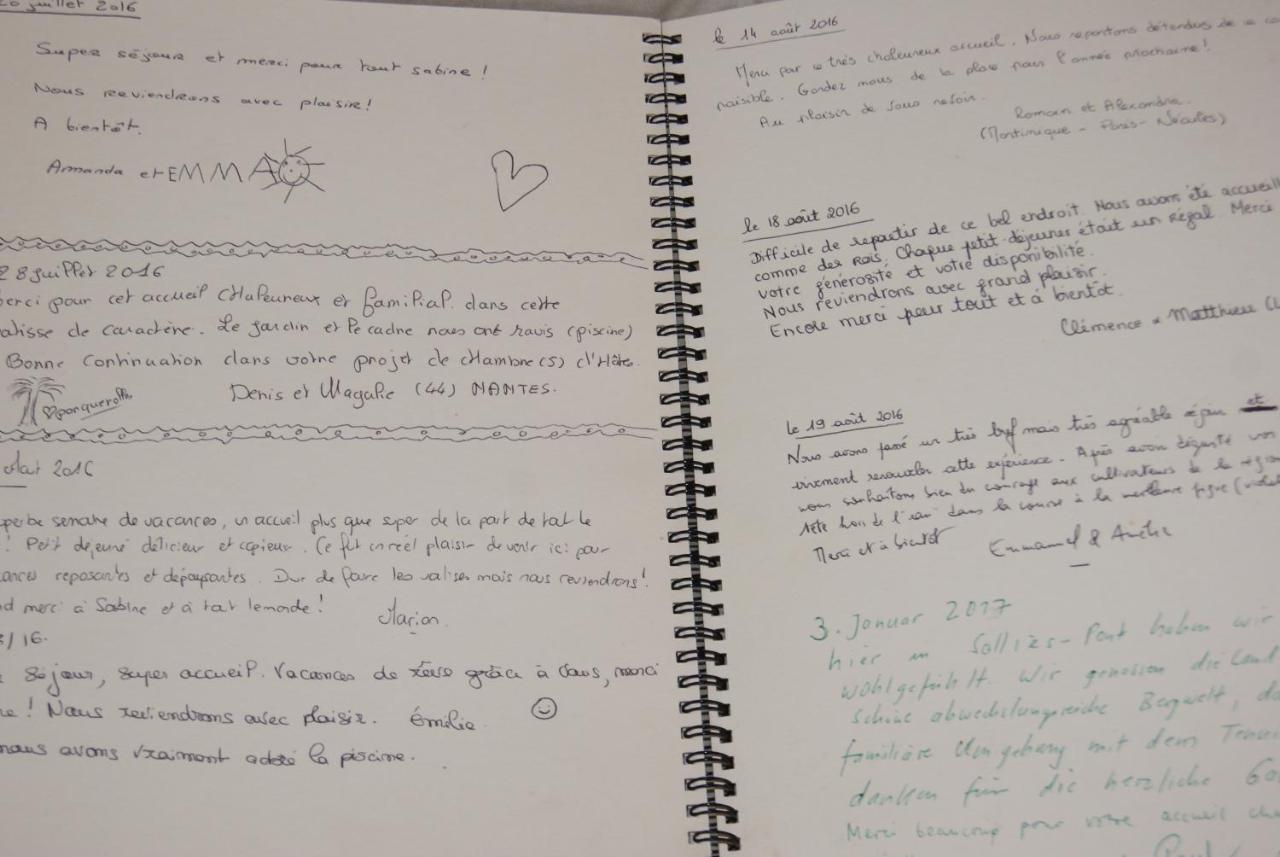 juillet 2016
Super séjour et merci pour tout Sabine !
Nous reviendrons avec plaisir !
A bientôt.
Armanda et EMMA
28 juillet 2016
erci pour cet accueil chaleureux et familial dans cette
atisse de caractère. Le jardin et le cadre nous ont ravis (piscine)
Bonne continuation dans votre projet de chambre(s) d'Hôte.
Denis et Magalie (44) NANTES.
porquerolles
Aout 2016
perbe semaine de vacances, un accueil plus que super de la part de tout le
! Petit dejeuné délicieux et copieux. Ce fut un réel plaisir de venir ici pour
ances reposantes et depaysantes. Dur de faire les valises mais nous reviendrons !
d merci à Sabine et à tout le monde !
Marion.
/16.
séjour, super accueil. Vacances de rêve grâce à vous, merci
ne ! Nous reviendrons avec plaisir. Émilie.
nous avons vraiment adoré la piscine.
le 14 août 2016
Merci par ce très chaleureux accueil. Nous repartons détendus de ce
paisible. Gardez nous de la place pour l'année prochaine !
Au plaisir de vous revoir.
Romain et Alexandra.
(Martinique - Paris - Néoules)
le 18 août 2016
Difficile de repartir de ce bel endroit. Nous avons été accueilli
comme des Rois. Chaque petit-déjeuner était un Régal. Merci
votre générosité et votre disponibilité.
Nous reviendrons avec grand plaisir.
Encore merci pour tout et à bientôt.
Clémence & Matthieu
le 19 août 2016
Nous avons passé un très bref mais très agréable séjour et
vivement renouveler cette expérience. Après avoir dégusté vos
vous souhaitons bien du courage aux cultivateurs de la région
tête hors de l'eau dans la course à la meilleure figue
Merci et à bientôt
Emmanuel &
3. Januar 2017
hier in Solliès-Pont haben wir
wohlgefühlt. Wir genossen die Land
schöne abwechslungsreiche Bergwelt, d
familiäre Umgebung mit dem
danken für die herzliche Ga
Merci beaucoup pour votre accueil cha